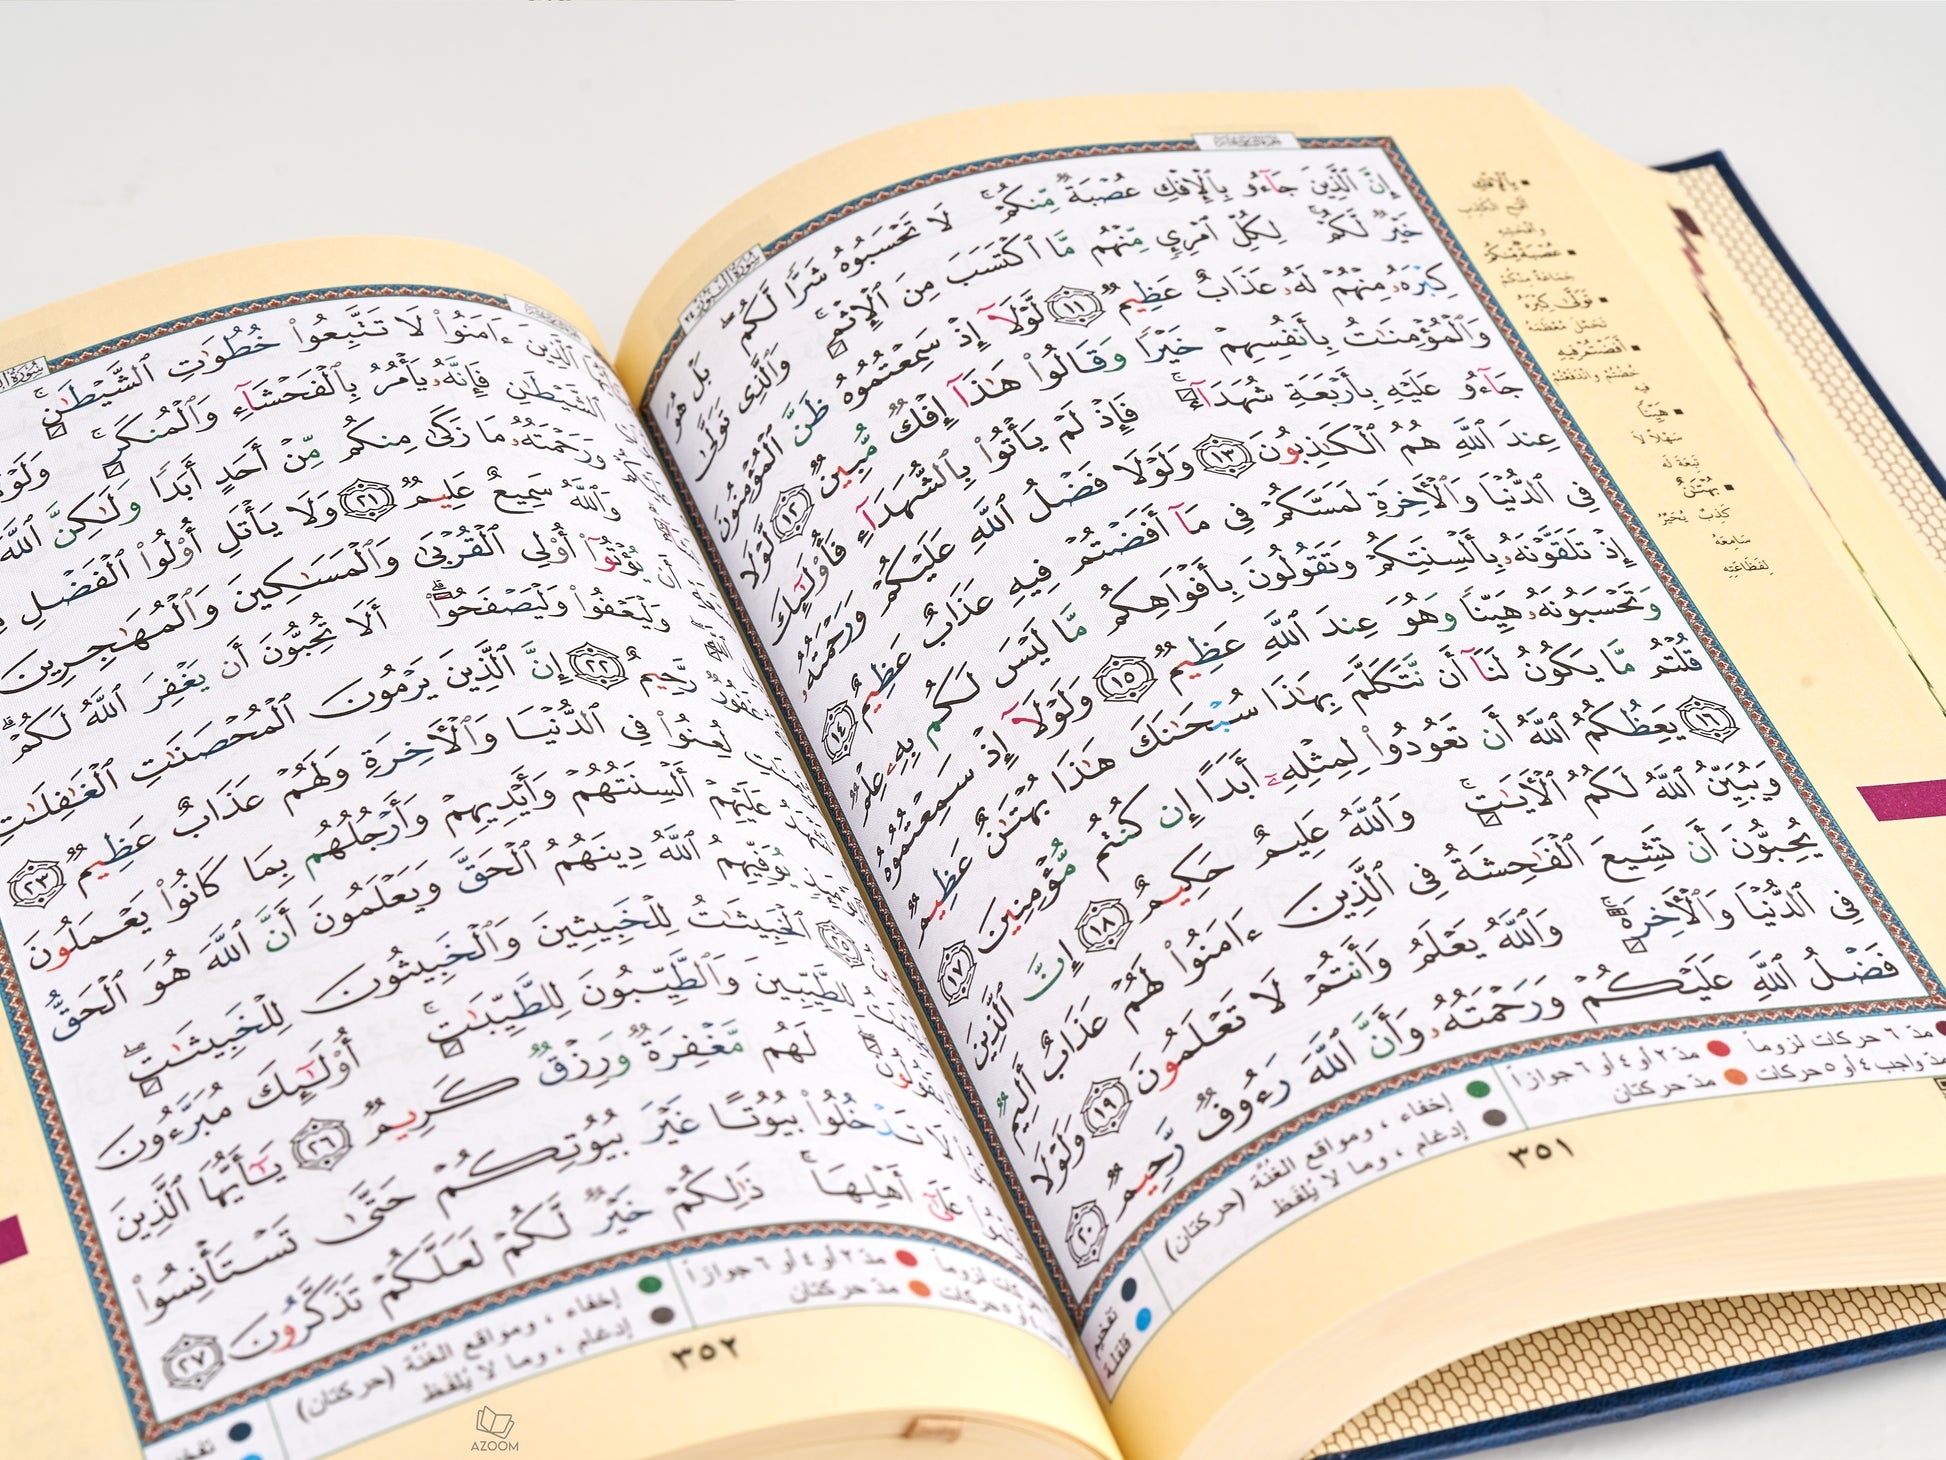 سُورَةُ النُّورِ ٢٤
إِنَّ ٱلَّذِينَ جَآءُو بِٱلْإِفْكِ عُصْبَةٌ مِّنكُمْ ۚ لَا تَحْسَبُوهُ شَرًّا لَّكُم ۖ بَلْ هُوَ
خَيْرٌ لَّكُمْ ۚ لِكُلِّ ٱمْرِئٍ مِّنْهُم مَّا ٱكْتَسَبَ مِنَ ٱلْإِثْمِ ۚ وَٱلَّذِى تَوَلَّىٰ
كِبْرَهُۥ مِنْهُمْ لَهُۥ عَذَابٌ عَظِيمٌ ١١ لَّوْلَآ إِذْ سَمِعْتُمُوهُ ظَنَّ ٱلْمُؤْمِنُونَ
وَٱلْمُؤْمِنَـٰتُ بِأَنفُسِهِمْ خَيْرًا وَقَالُوا۟ هَـٰذَآ إِفْكٌ مُّبِينٌ ١٢ لَّوْلَا
جَآءُو عَلَيْهِ بِأَرْبَعَةِ شُهَدَآءَ ۚ فَإِذْ لَمْ يَأْتُوا۟ بِٱلشُّهَدَآءِ فَأُو۟لَـٰٓئِكَ
عِندَ ٱللَّهِ هُمُ ٱلْكَـٰذِبُونَ ١٣ وَلَوْلَا فَضْلُ ٱللَّهِ عَلَيْكُمْ وَرَحْمَتُهُۥ
فِى ٱلدُّنْيَا وَٱلْـَٔاخِرَةِ لَمَسَّكُمْ فِى مَآ أَفَضْتُمْ فِيهِ عَذَابٌ عَظِيمٌ ١٤
إِذْ تَلَقَّوْنَهُۥ بِأَلْسِنَتِكُمْ وَتَقُولُونَ بِأَفْوَاهِكُم مَّا لَيْسَ لَكُم بِهِۦ عِلْمٌ
وَتَحْسَبُونَهُۥ هَيِّنًا وَهُوَ عِندَ ٱللَّهِ عَظِيمٌ ١٥ وَلَوْلَآ إِذْ سَمِعْتُمُوهُ
قُلْتُم مَّا يَكُونُ لَنَآ أَن نَّتَكَلَّمَ بِهَـٰذَا سُبْحَـٰنَكَ هَـٰذَا بُهْتَـٰنٌ عَظِيمٌ
١٦ يَعِظُكُمُ ٱللَّهُ أَن تَعُودُوا۟ لِمِثْلِهِۦٓ أَبَدًا إِن كُنتُم مُّؤْمِنِينَ ١٧
وَيُبَيِّنُ ٱللَّهُ لَكُمُ ٱلْـَٔايَـٰتِ ۚ وَٱللَّهُ عَلِيمٌ حَكِيمٌ ١٨ إِنَّ ٱلَّذِينَ
يُحِبُّونَ أَن تَشِيعَ ٱلْفَـٰحِشَةُ فِى ٱلَّذِينَ ءَامَنُوا۟ لَهُمْ عَذَابٌ أَلِيمٌ
فِى ٱلدُّنْيَا وَٱلْـَٔاخِرَةِ ۚ وَٱللَّهُ يَعْلَمُ وَأَنتُمْ لَا تَعْلَمُونَ ١٩ وَلَوْلَا
فَضْلُ ٱللَّهِ عَلَيْكُمْ وَرَحْمَتُهُۥ وَأَنَّ ٱللَّهَ رَءُوفٌ رَّحِيمٌ ٢٠
مدّ ٦ حركات لزوماً مدّ ٢ أو ٤ أو ٦ جوازاً
مدّ واجب ٤ أو ٥ حركات مدّ حركتان
إخفاء ، ومواقع الغُنَّة (حركتان)
إدغام ، وما لا يُلفَظ
تفخيم
قلقلة
٣٥١
بِالْإِفْكِ
أَقْبَحِ الْكَذِبِ
عُصْبَةٌ مِنْكُمْ
جَمَاعَةٌ مِنْكُمْ
تَوَلَّىٰ كِبْرَهُ
تَحَمَّلَ مُعْظَمَهُ
أَفَضْتُمْ فِيهِ
خُضْتُمْ وَانْدَفَعْتُمْ
فِيهِ
هَيِّنًا
سَهْلًا لَا
تَبِعَةَ لَهُ
بُهْتَانٌ
كَذِبٌ يُحَيِّرُ
سَامِعَهُ
لِفَظَاعَتِهِ
ٱلَّذِينَ ءَامَنُوا۟ لَا تَتَّبِعُوا۟ خُطُوَٰتِ ٱلشَّيْطَـٰنِ ۚ
ٱلشَّيْطَـٰنِ فَإِنَّهُۥ يَأْمُرُ بِٱلْفَحْشَآءِ وَٱلْمُنكَرِ ۚ
وَرَحْمَتُهُۥ مَا زَكَىٰ مِنكُم مِّنْ أَحَدٍ أَبَدًا وَلَـٰكِنَّ ٱللَّهَ
وَٱللَّهُ سَمِيعٌ عَلِيمٌ ٢١ وَلَا يَأْتَلِ أُو۟لُوا۟ ٱلْفَضْلِ
أَن يُؤْتُوٓا۟ أُو۟لِى ٱلْقُرْبَىٰ وَٱلْمَسَـٰكِينَ وَٱلْمُهَـٰجِرِينَ
وَلْيَعْفُوا۟ وَلْيَصْفَحُوٓا۟ ۗ أَلَا تُحِبُّونَ أَن يَغْفِرَ ٱللَّهُ لَكُمْ ۗ
غَفُورٌ رَّحِيمٌ ٢٢ إِنَّ ٱلَّذِينَ يَرْمُونَ ٱلْمُحْصَنَـٰتِ ٱلْغَـٰفِلَـٰتِ
لُعِنُوا۟ فِى ٱلدُّنْيَا وَٱلْـَٔاخِرَةِ وَلَهُمْ عَذَابٌ عَظِيمٌ ٢٣
عَلَيْهِمْ أَلْسِنَتُهُمْ وَأَيْدِيهِمْ وَأَرْجُلُهُم بِمَا كَانُوا۟ يَعْمَلُونَ
يُوَفِّيهِمُ ٱللَّهُ دِينَهُمُ ٱلْحَقَّ وَيَعْلَمُونَ أَنَّ ٱللَّهَ هُوَ ٱلْحَقُّ
٢٥ ٱلْخَبِيثَـٰتُ لِلْخَبِيثِينَ وَٱلْخَبِيثُونَ لِلْخَبِيثَـٰتِ ۖ
لِلطَّيِّبِينَ وَٱلطَّيِّبُونَ لِلطَّيِّبَـٰتِ ۚ أُو۟لَـٰٓئِكَ مُبَرَّءُونَ
لَهُم مَّغْفِرَةٌ وَرِزْقٌ كَرِيمٌ ٢٦ يَـٰٓأَيُّهَا ٱلَّذِينَ
لَا تَدْخُلُوا۟ بُيُوتًا غَيْرَ بُيُوتِكُمْ حَتَّىٰ تَسْتَأْنِسُوا۟
عَلَىٰٓ أَهْلِهَا ۚ ذَٰلِكُمْ خَيْرٌ لَّكُمْ لَعَلَّكُمْ تَذَكَّرُونَ ٢٧
حركات لزوماً مدّ ٢ أو ٤ أو ٦ جوازاً
٤ أو ٥ حركات مدّ حركتان
إخفاء ، ومواقع الغُنَّة (حركتان)
إدغام ، وما لا يُلفَظ
تفخيم
٣٥٢
AZOOM